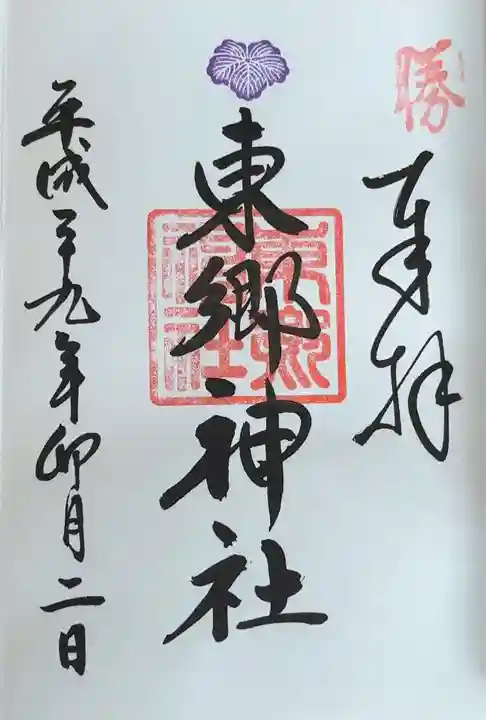 勝
奉拝
東郷神社
東郷神社
平成二十九年卯月二日